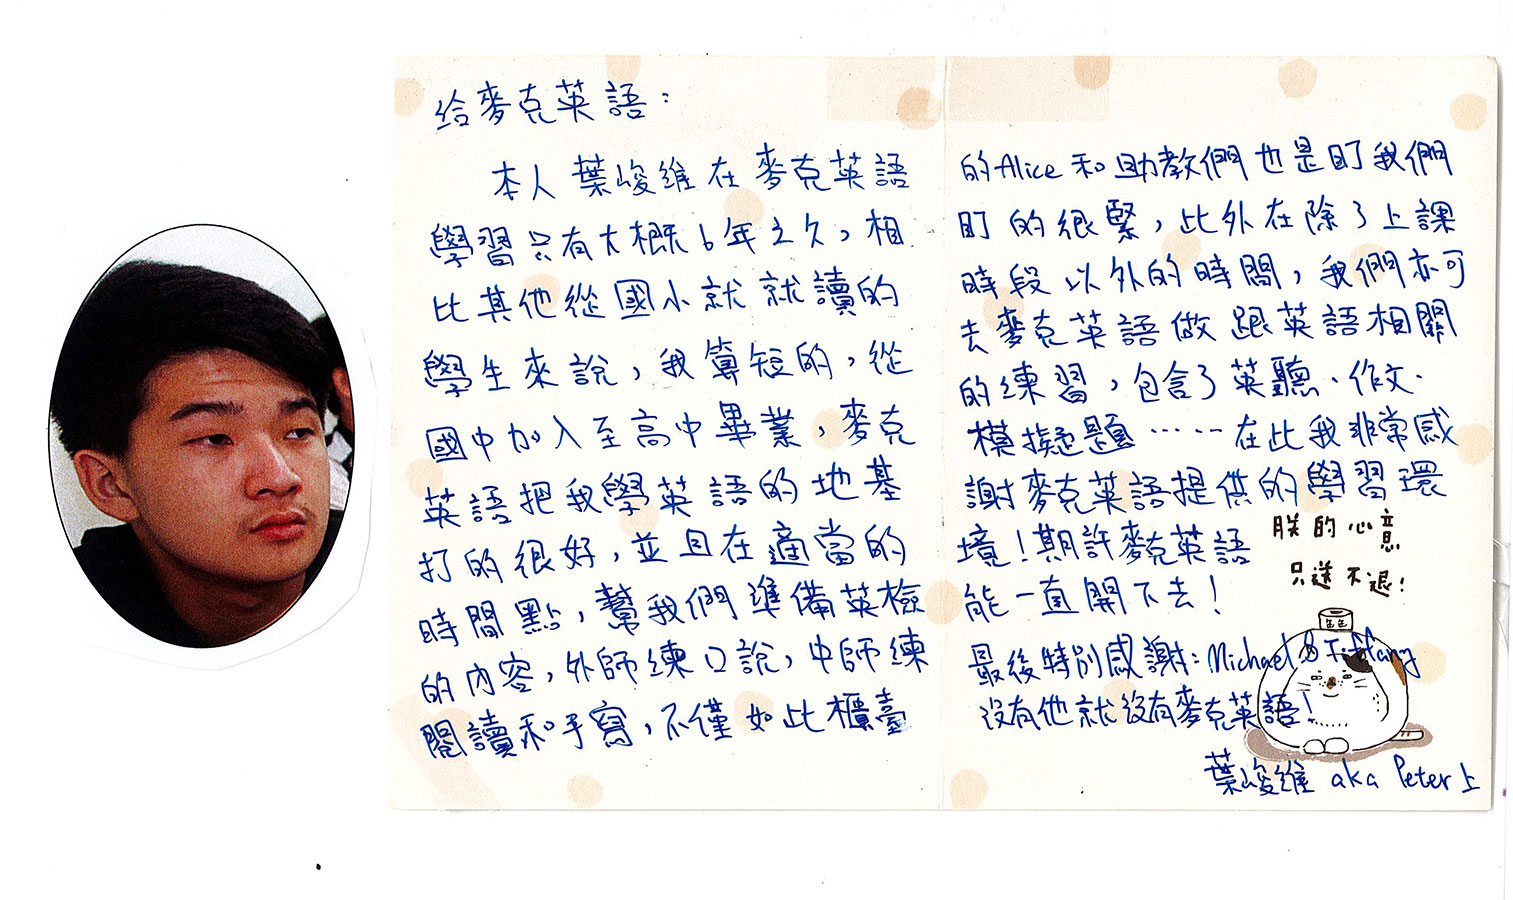 給麥克英語：
本人葉峻維在麥克英語
學習只有大概6年之久，相
比其他從國小就就讀的
學生來說，我算短的，從
國中加入至高中畢業，麥克
英語把我學英語的地基
打的很好，並且在適當的
時間點，幫我們準備英檢
的內容，外師練口說，中師練
閱讀和手寫，不僅如此櫃臺
的Alice和助教們也是盯我們
盯的很緊，此外在除了上課
時段以外的時間，我們亦可
去麥克英語做跟英語相關
的練習，包含了英聽、作文、
模擬題……在此我非常感
謝麥克英語提供的學習環
境！期許麥克英語
能一直開下去！
朕的心意
只送不退！
最後特別感謝：Michael & Tiffany
沒有他就沒有麥克英語！
葉峻維 aka Peter上